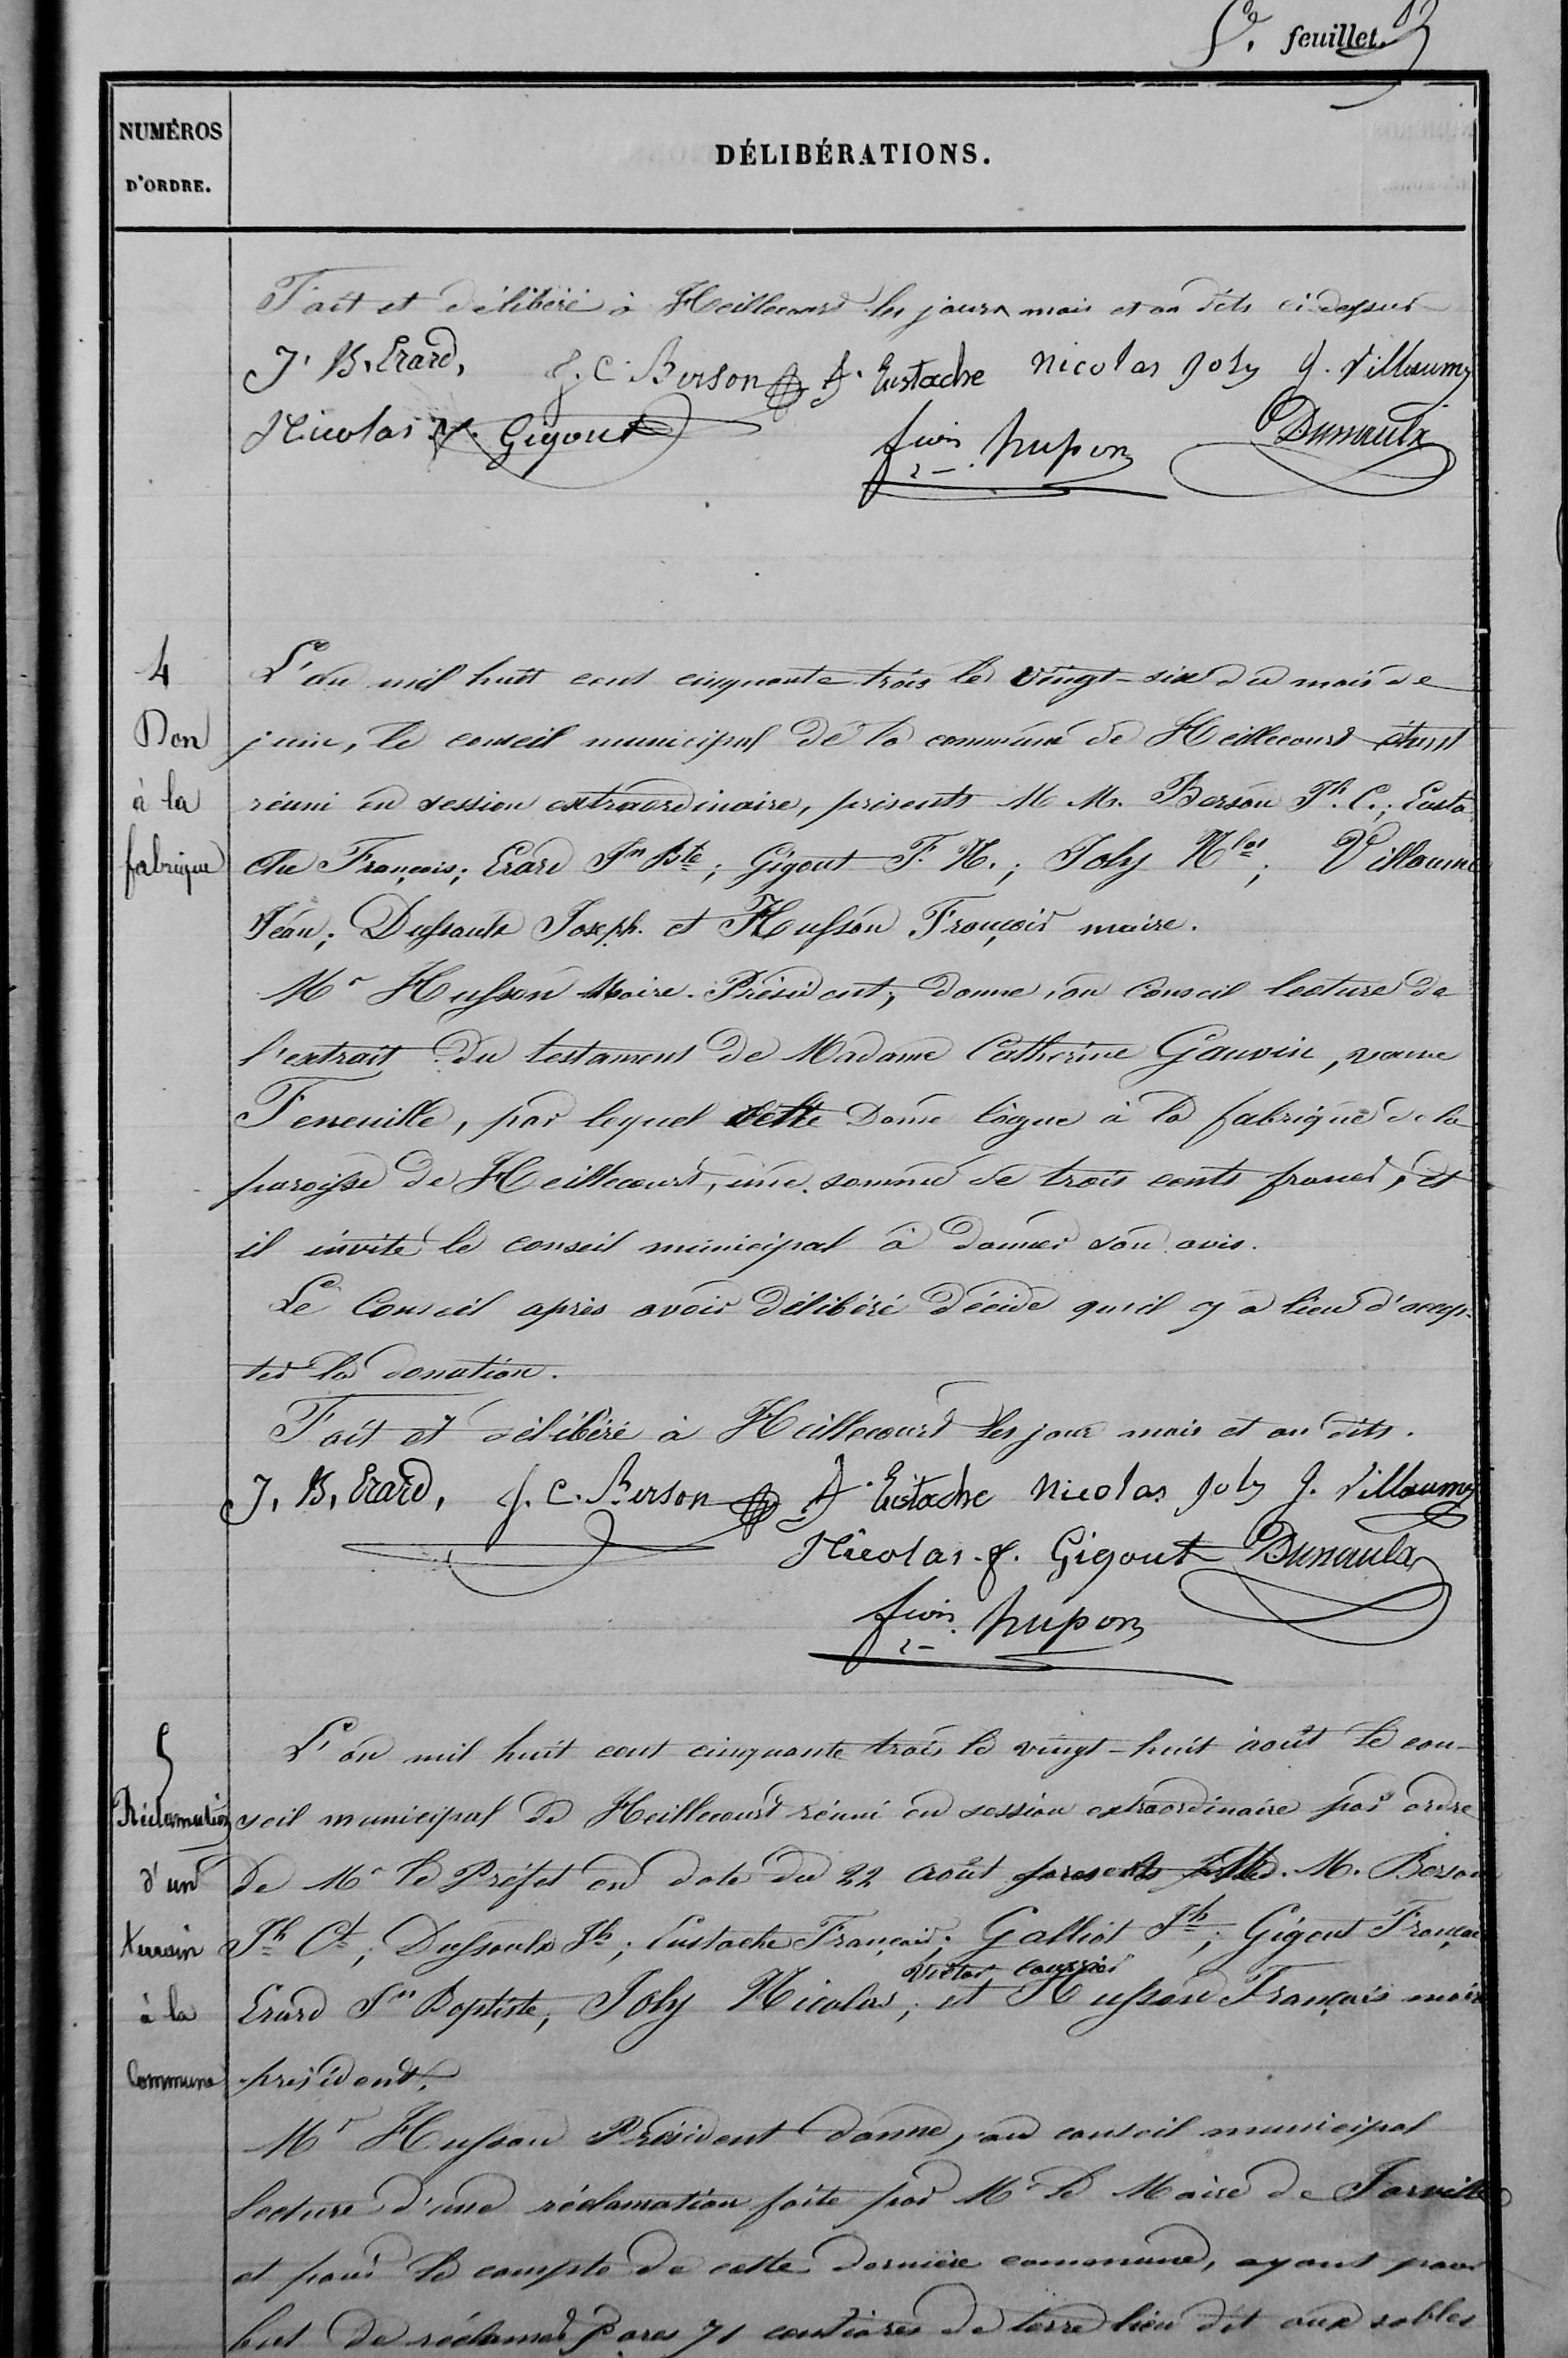 feuillet.
NUMÉROS
D'ORDRE.
DÉLIBÉRATIONS.
Fait et délibéré à Heillecourt les jours mois et an dits ci dessus
J. B. Erard, J. C. Berson F. Eustache Nicolas Joly J. Villaume
Nicolas F. Gigout fcois husson Dussaulx
4
Don
à la
fabrique
L'an mil huit cent cinquante trois le vingt-six du mois de
juin, le conseil municipal de la commune de Heillecourt étant
réuni en session extraordinaire, présents M. M. Berson Jh. C.; Eusta
che François; Erard Jn Bte; Gigout F. N.; Joly Nlas; Villaume
Jean; Dussaulx Joseph. et Husson François maire.
Mr Husson Maire. Président, donne au Conseil lecture de
l'extrait du testament de Madame Catherine Gauvin, veuve
, par lequel cette Dame lègue à la fabrique de la
paroisse de Heillecourt, une somme de trois cents francs, et
il invite le conseil municipal à donner son avis.
Le Conseil après avoir délibéré décide qu'il y a lieu d'accep-
ter la donation.
Fait et délibéré à Heillecourt les jour mois et an dits.
J. B. Erard, J. C. Berson F. Eustache Nicolas Joly J. Villaume
Nicolas. f. Gigout Dussaulx
fcois. husson
5
Réclamation
d'un
terrain
à la
Commune
L'an mil huit cent cinquante trois le vingt-huit août le con-
seil municipal de Heillecourt réuni en session extraordinaire par ordre
de Mr le Préfet en date du 22 août présents M. Berson
Jh Ct; Dussaulx Jh; Eustache François; Galliot Jh; Gigout François
Victor
Erard Jn Baptiste, Joly Nicolas; et Husson François maire
président.
Mr Husson Président donne, au conseil municipal
lecture d'une réclamation faite par Mr le Maire de Jarville
et pour le compte de cette dernière commune, ayant pour
but de réclamer ares 71 centiares de terre lieu dit aux sables